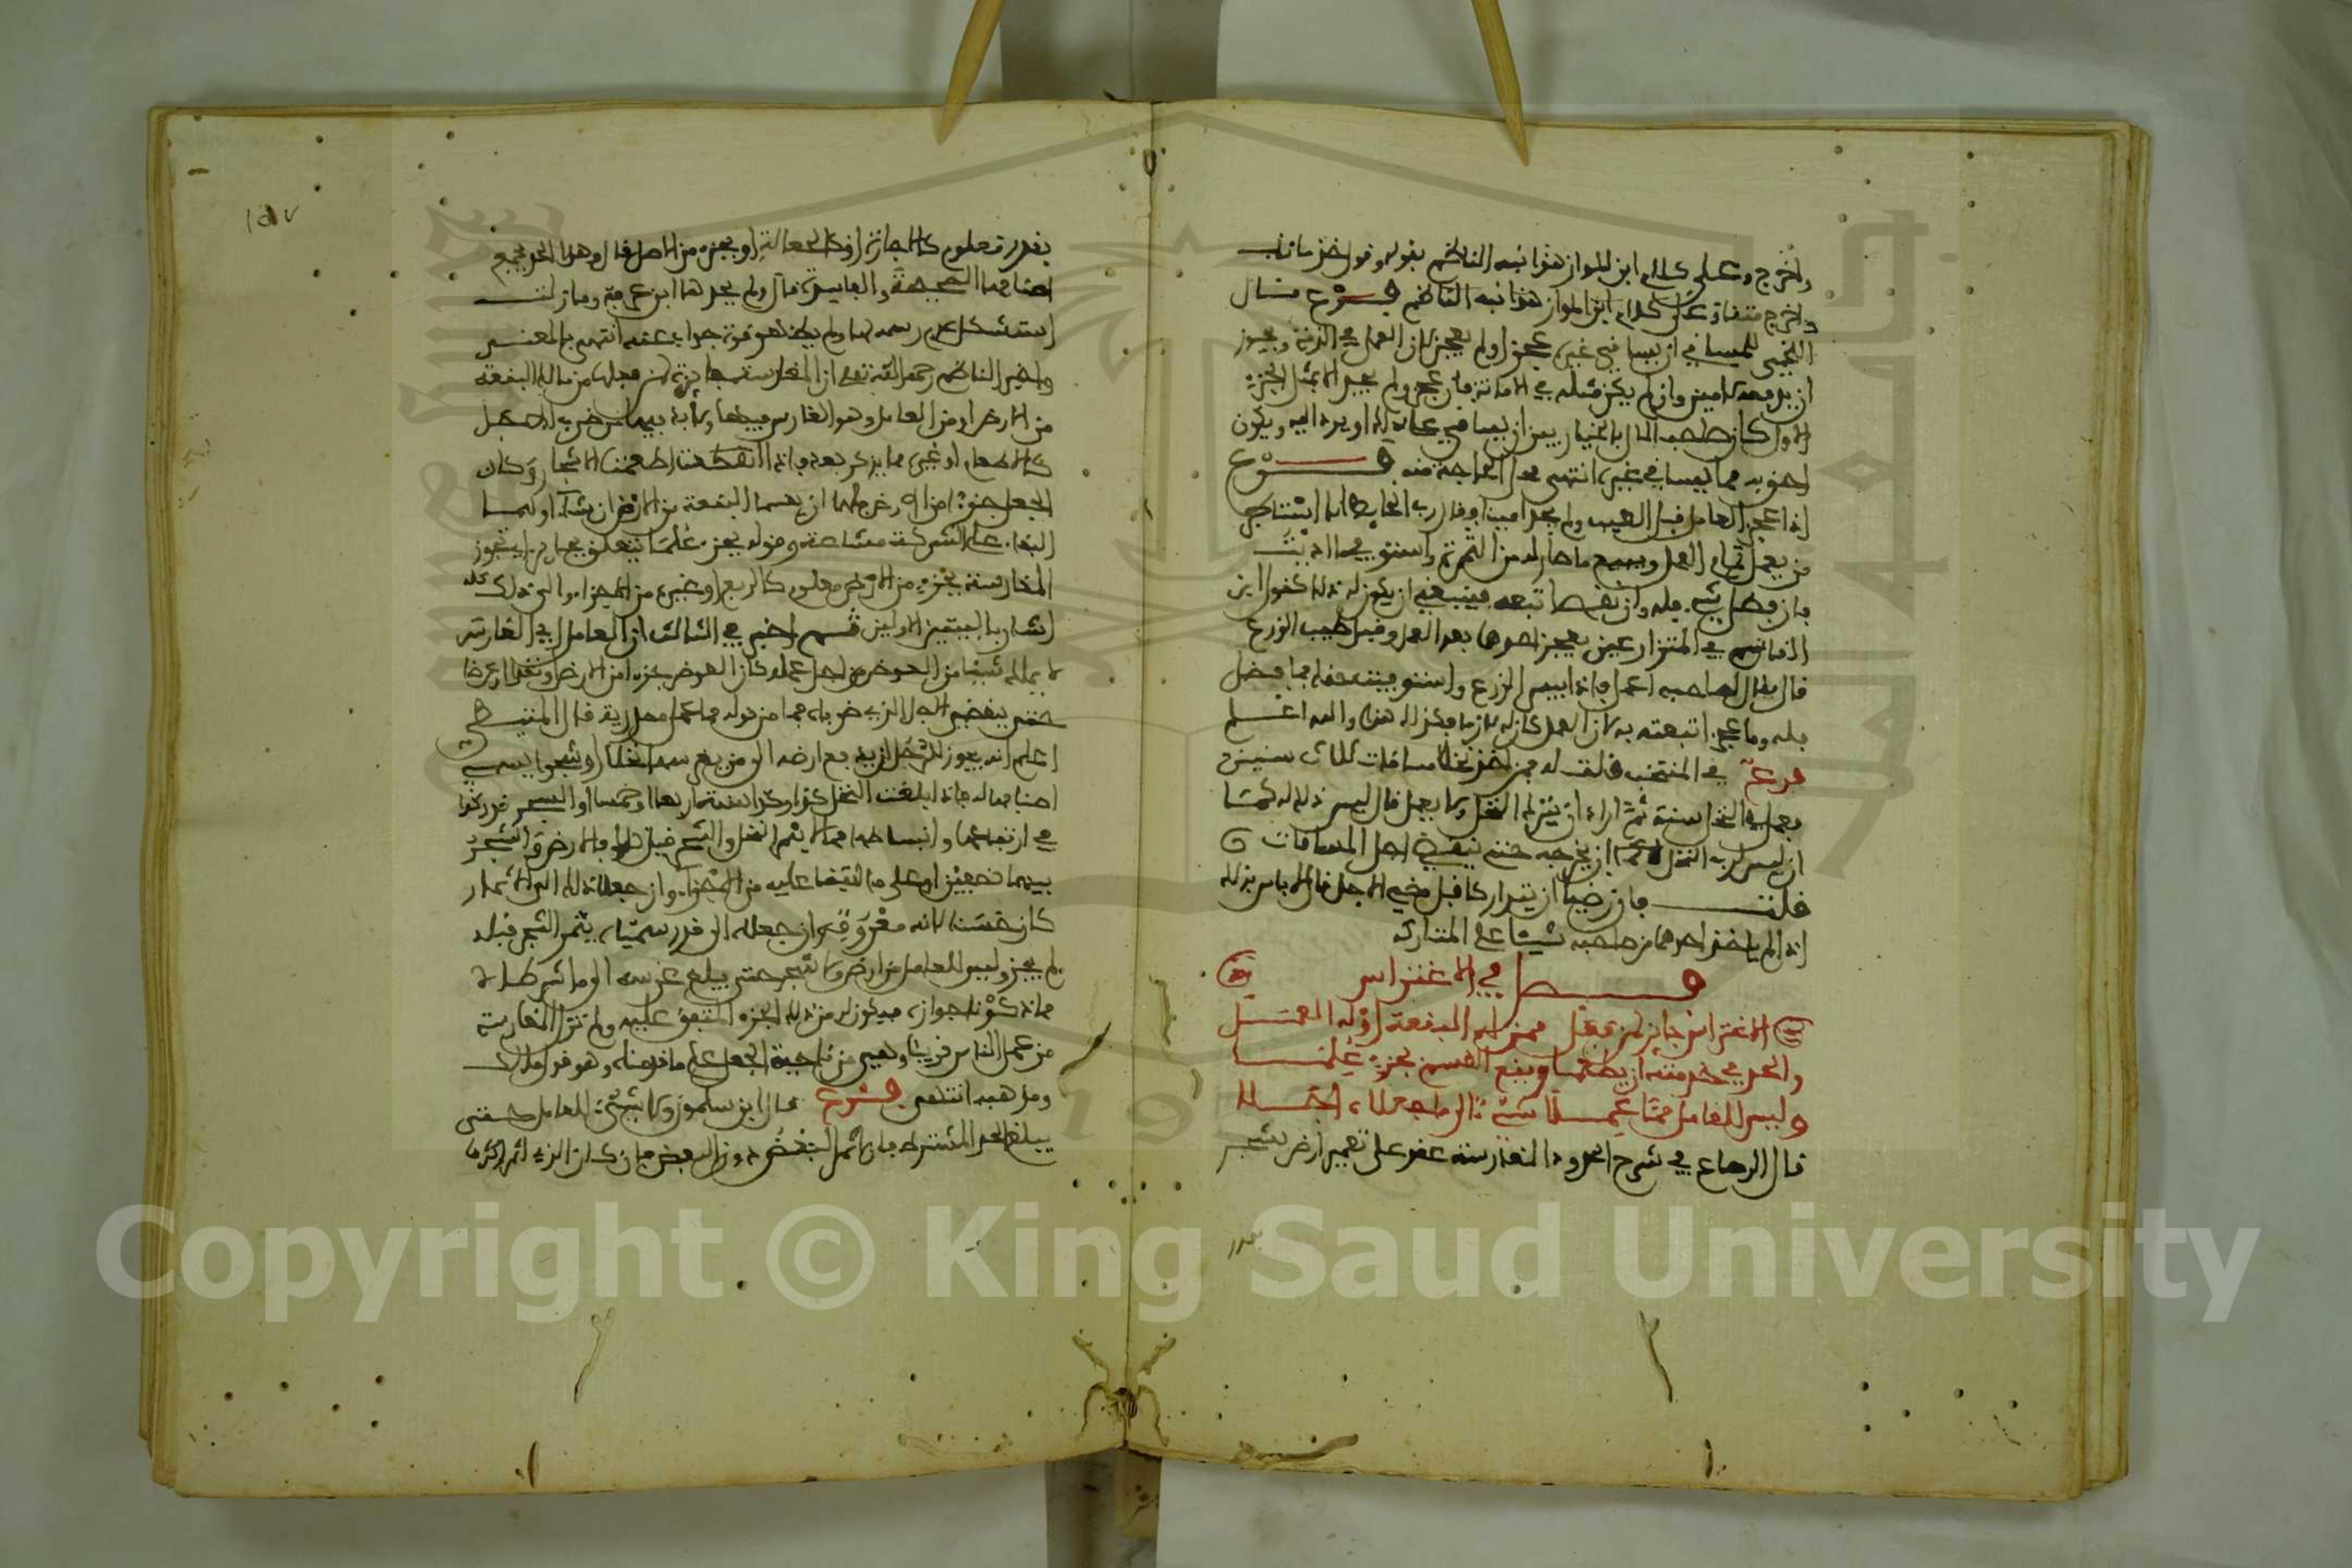 واخرج وعلى كلام ابن المواز هذا نبه الناظم بقوله وقول خذ ما ناب
واخرج متفاد على كلام ابن المواز هذا نبه الناظم فرع قال
اللخمي للمساقي ان يساقي غيره عجز او لم يعجز لان العمل في الذمة ويجوز
ان يدفعه لامين وان لم يكن مثله في الامانة فان عجز ولم يجد الا بمثل الجزء
الاول كان صاحب المال بالخيار بين ان يساقي عامله او يرده اليه ويكون
احق به مما يساقي غيره انتهى محل الحاجة منه فرع
اذا عجز العامل قبل الطيب ولم يجد امينا وقال رب الحائط انا استاجر
من يعمل تمام العمل وبيع ما صار له من الثمرة واستوفي ما اديت
فان فضل شيء فله وان نقص اتبعه فينبغي ان يكون له ذلك كقول ابن
القاسم في المتزارعين يعجز احدهما بعد العمل وقبل طيب الزرع
قال يقال لصاحبه اعمل فاذا يبس الزرع واستوفيت حقك فما فضل
فله وما عجز اتبعته به لان العمل كان له لازما وكذلك هذا والله اعلم
فرع في المنتخب قلت له فمن اخذ نخلا مساقات ثلاث سنين
يعمل في النخل سنة ثم اراد ان يترك النخل ولا يعمل قال ليس ذلك له كما
ان ليس لرب النخل ان يخرجه حتى ينقضي اجل المساقات
قلت فان رضيا ان يتتاركا قبل مضي الاجل قال لا باس بذلك
اذا لم ياخذ احدهما من صاحبه شيئا على المتاركة
فصل في الاغتراس
الاغتراس جائز لمن فعل ممن له البقعة او له العمل
والحد في خدمته ان يطعما ويقع القسم بجزء علما
وليس للعامل مما عملا شيء الى ما جعلاه اجلا
قال الرصاع في شرح الحدود المغارسة عقد على تعمير ارض بشجر
بقدر
١٥٧
بقدر معلوم كالاجارة او كالجعالة او بجزء من الاصل قال وهذا الحد يجمع
اصنافها الصحيحة والفاسدة قال ولم يحدها ابن عرفة وما زلت
استشكل عدم رسمه لها ولم يظهر قوة جواب عنه انتهى بالمعنى
واخبر الناظم رحمه الله تعالى ان المغارسة جائزة لمن فعلها من مالك البقعة
من الارض او من العامل وهو الغارس فيها ولا بد بينهما من ضرب الاجل
كالاطعام او غيره مما يذكر بعد فاذا انقضت اطعمت الاشجار وكان
الجعل جزءا من الارض فلهما ان يقسما البقعة من الارض ان شاءا او لهما
البقاء على الشركة مشاعة وقوله بجزء علما يتعلق بجائز اي تجوز
المغارسة بجزء من الارض معلوم كالربع او غيره من الاجزاء والى ذلك كله
اشار بالبيتين الاولين ثم اخبر في الثالث ان العامل اي الغارس
لا يملك شيئا من العوض من اجل عمله كان العوض جزءا من الارض او نقدا او عرضا
حتى ينقضي الاجل الذي ضرباه فما من قوله مما عملا مصدرية قال المتيطي
اعلم انه يجوز للرجل ان يدفع ارضه الى من يغرسها نخلا او شجرا يسمي
اصنافها له فاذا بلغت النخل كذا وكذا سنة اربعا او خمسا او الشجر قدر كذا
في ارتفاعها وانبساطها مما لا يثمر النخل والشجر قبل ذلك فالارض والشجر
بينهما نصفين او على ما اتفقا عليه من الاجزاء وان جعلا ذلك الى الاثمار
كان حسنا لانه معروف وان جعلاه الى قدر سمياه يثمر الشجر قبله
لم يجز وليس للعامل من ارض ولا شجر حتى يبلغ غرسه الى ما شرطاه
مما ذكرنا جوازه فيكون له من ذلك الجزء المتفق عليه ولم تزل المغارسة
من عمل الناس قديما وهي من ناحية الجعل على ما قدمناه وهو قول مالك
ومذهبه انتهى فرع قال ابن سلمون ولا شيء للعامل حتى
يبلغ الحد المشترط فان اثمر البعض دون البعض فان كان الذي اثمر اكثرها
Copyright © King Saud University